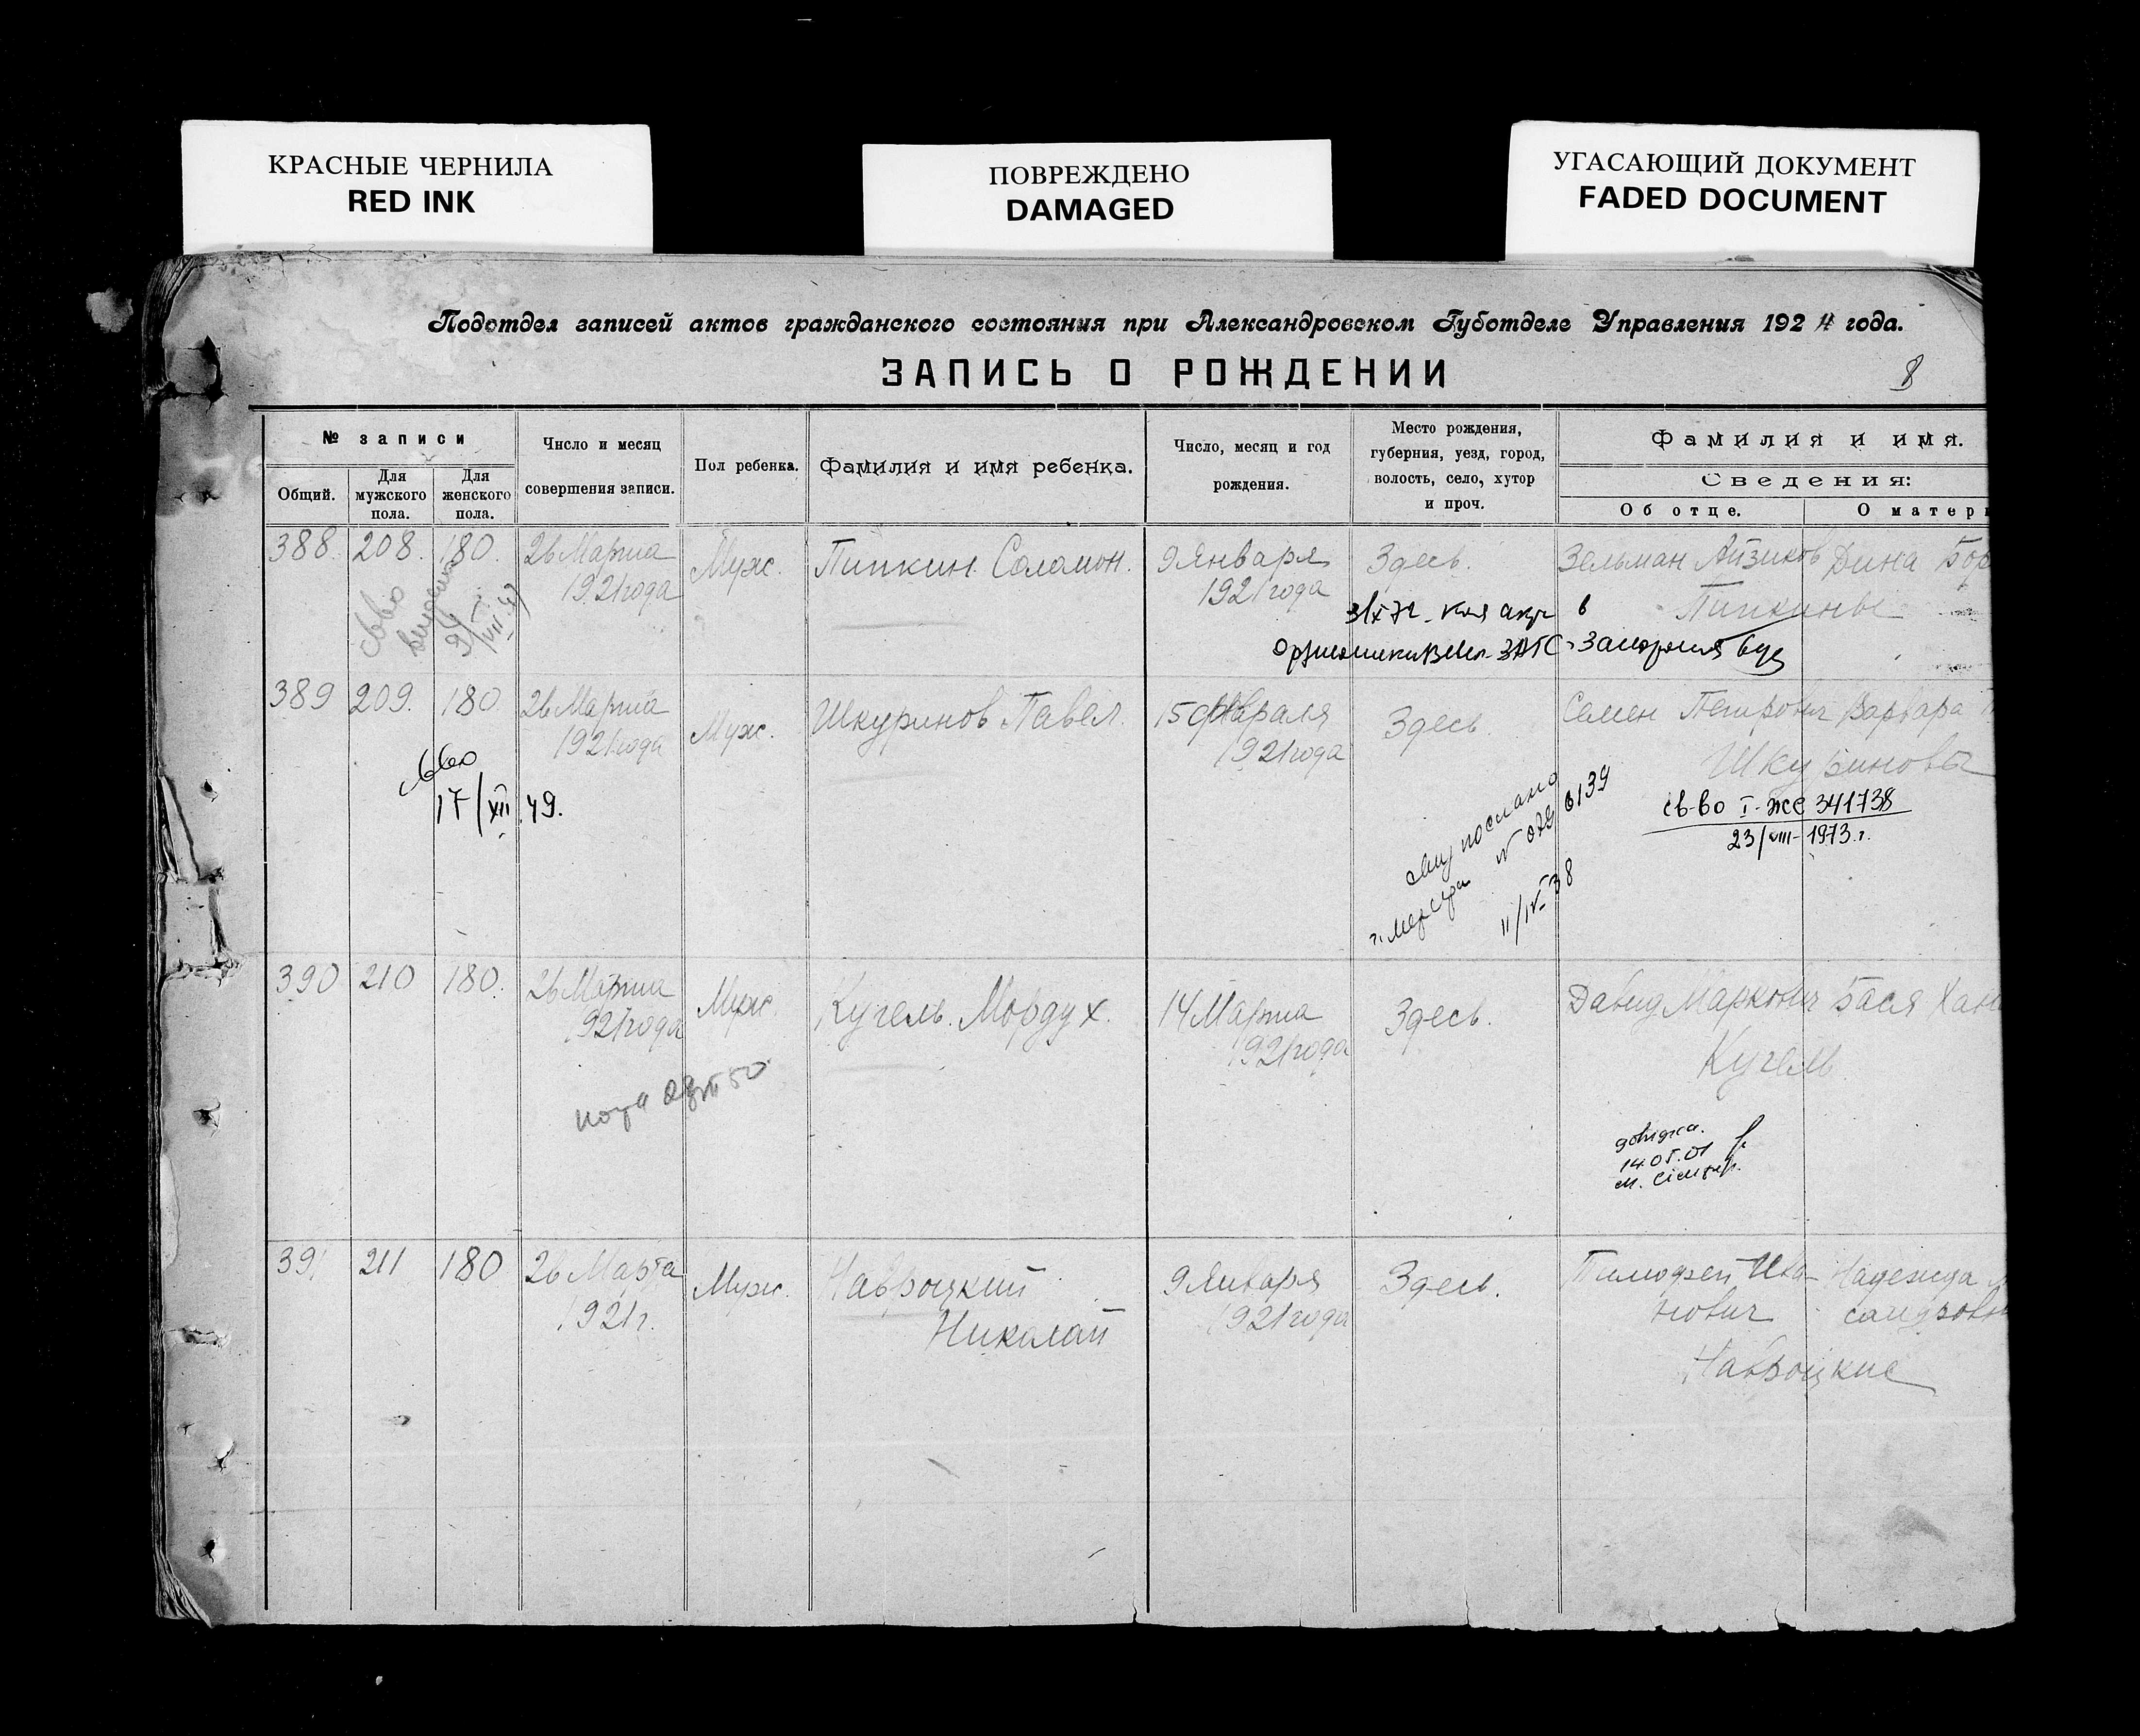 КРАСНЫЕ ЧЕРНИЛА
RED INK
ПОВРЕЖДЕНО
DAMAGED
УГАСАЮЩИЙ ДОКУМЕНТ
FADED DOCUMENT
Подотдел записей актов гражданского состояния при Александровском Губотделе Управления 192 года.
ЗАПИСЬ О РОЖДЕНИИ
8
№ записи
Общий.
Для мужского пола.
Для женского пола.
Число и месяц совершения записи.
Пол ребенка.
Фамилия и имя ребенка.
Число, месяц и год рождения.
Место рождения, губерния, уезд, город, волость, село, хутор и проч.
Фамилия и имя.
Сведения:
Об отце.
О матери
388. 208. 180. 26 Марта Муж. Пипкин Соломон. 9 Января Здесь. Зельман Айзиков Дина Бор
1921 года 1921 года Пипкины
св-во
ЗАГС
389 209. 180. 26 Марта Муж. Шкуринов Павел. 15 Февраля Здесь. Семен Петрович Варвара
1921 года 1921 года Шкуриновы
17/XII 49.
св-во I-же 341738
23/VIII-1973 г.
послано
11/IV-38
390 210 180. 26 Марта Муж. Кугель Мордух. 14 Марта Здесь. Давид Маркович Бася Хаи
1921 года 1921 года Кугель
довідка.
14.05.01
391 211 180 26 Марта Муж. Навроцкий 9 Января Здесь. Тимофей Ива- Надежда
1921 г. Николай 1921 года нович сандровн
Навроцкие